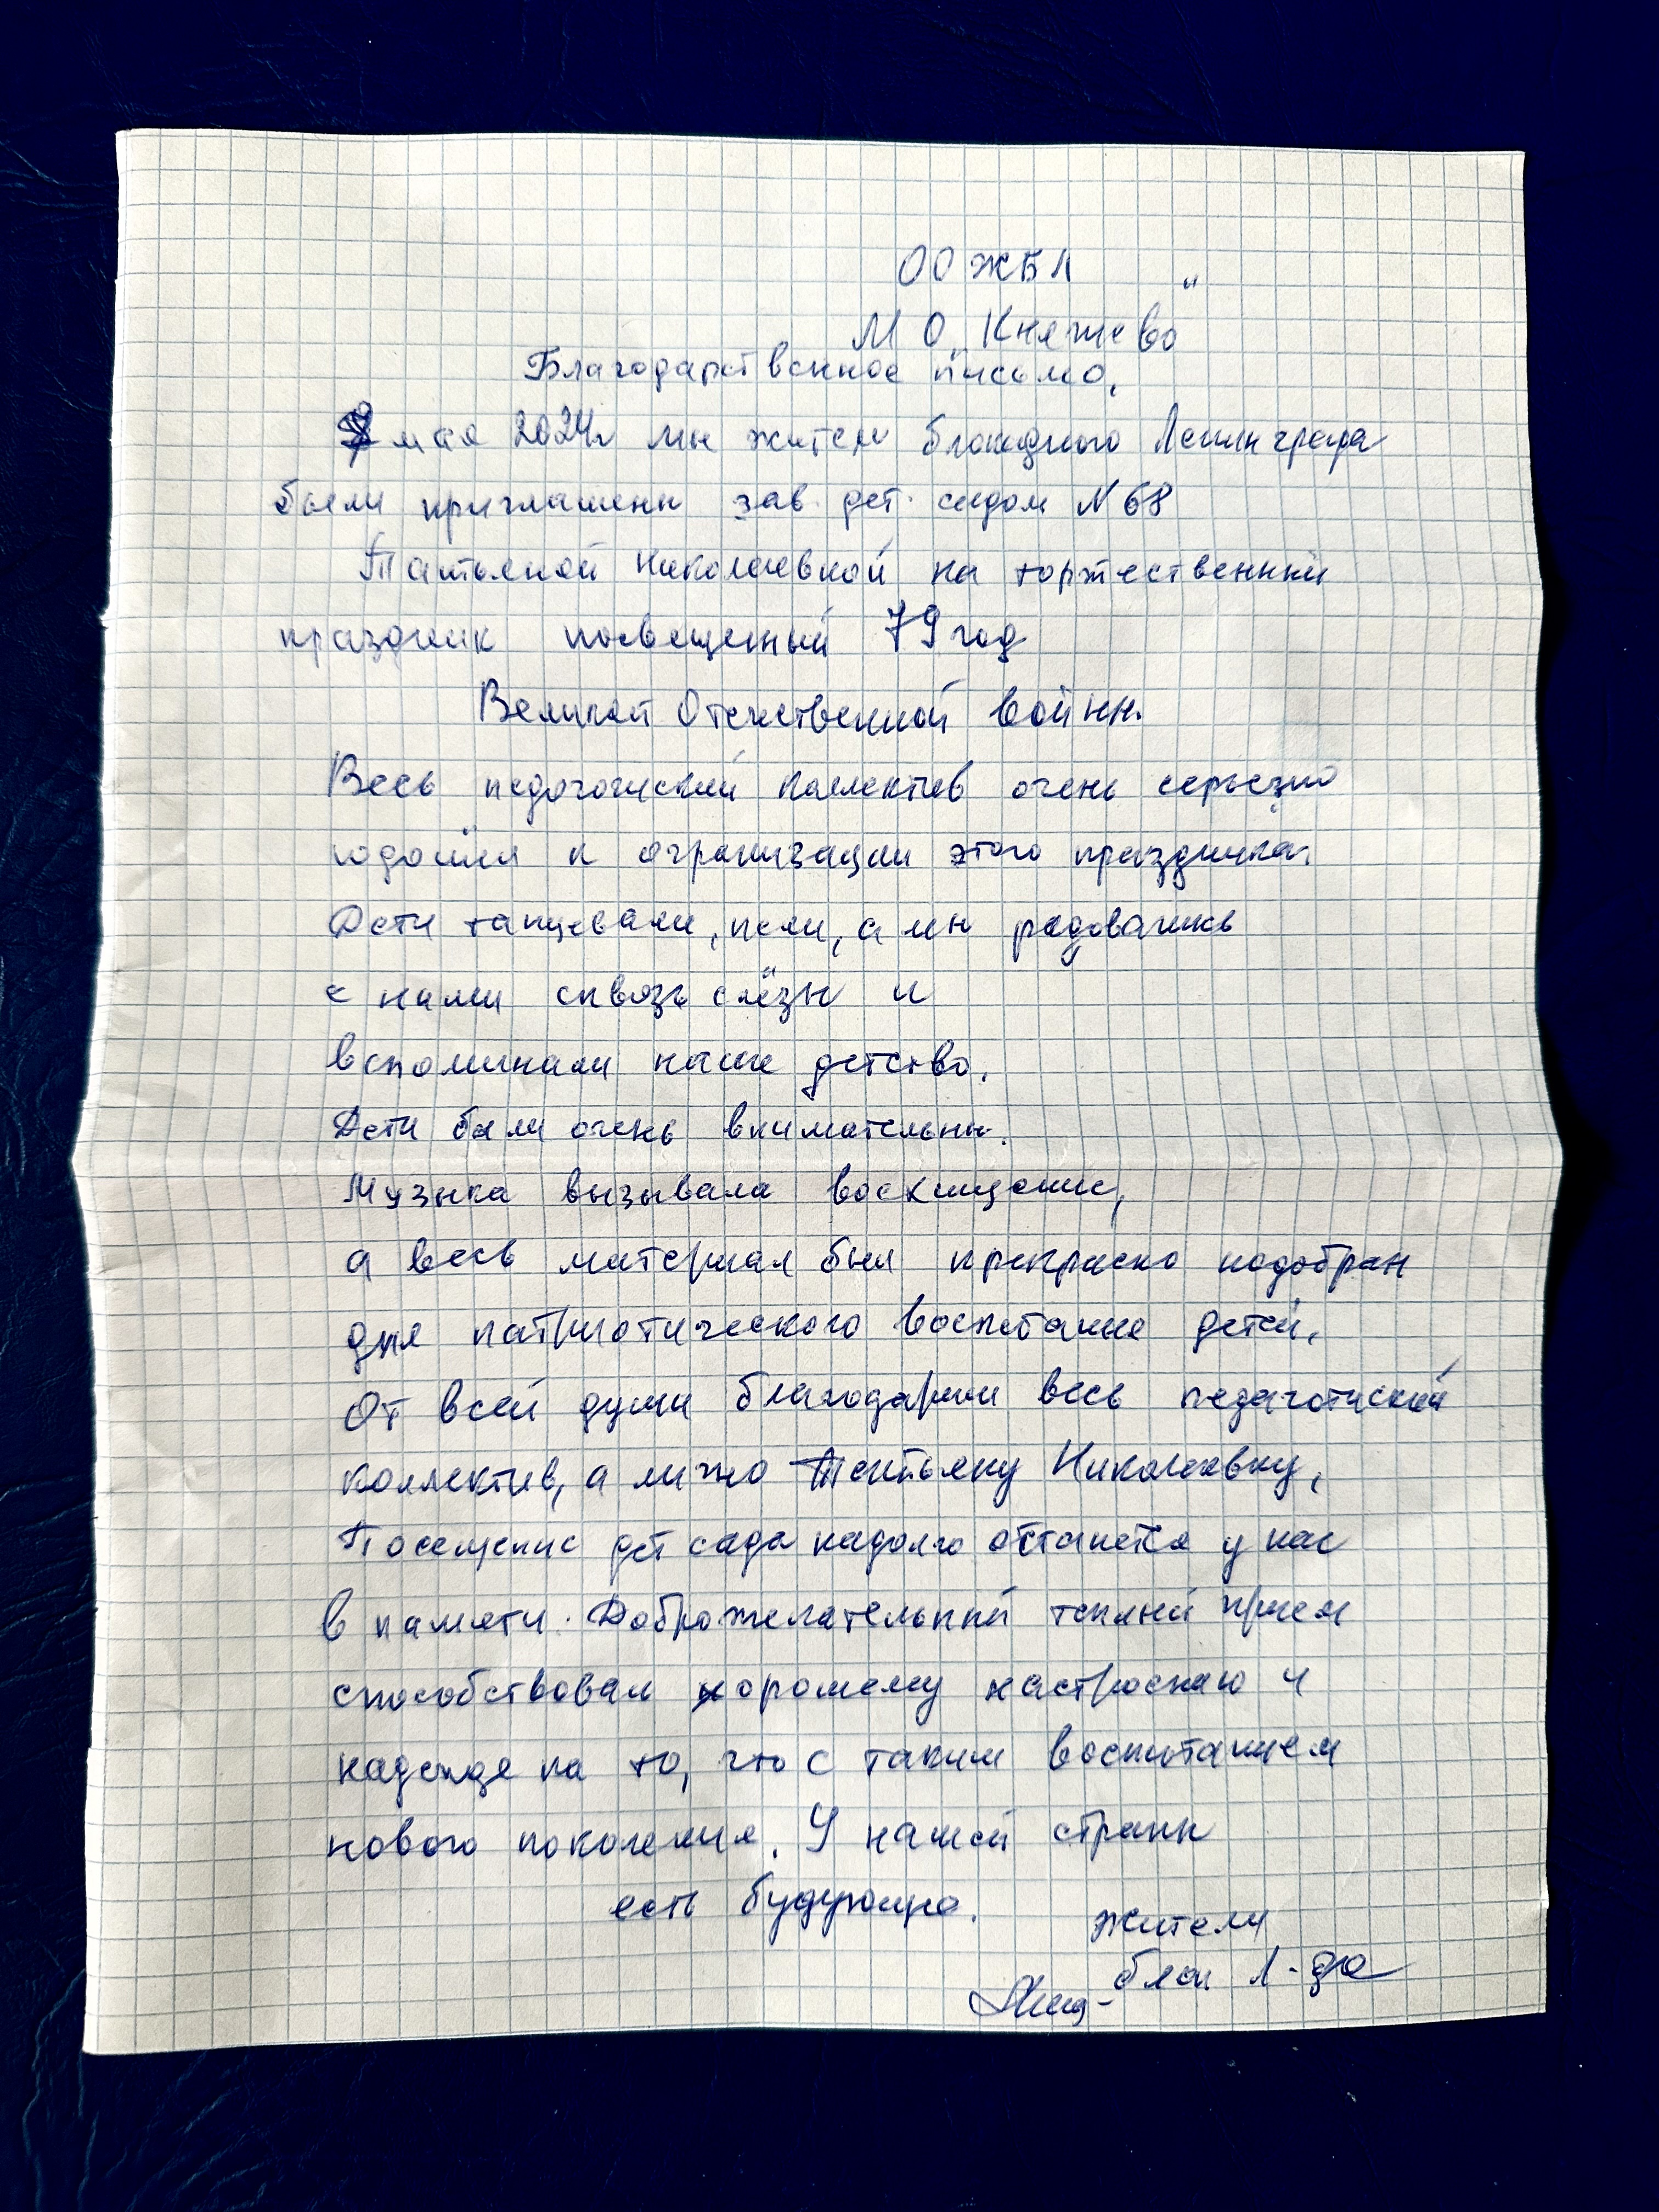 ООЖБЛ
М О „Княжево"
Благодарственное письмо.
мая 2024г мы жители блокадного Ленинграда
были приглашены зав. дет. садом N 68
Татьяной Николаевной на торжественный
праздник посвещенный 79 год
Великой Отечественной войны.
Весь педогогиский коллектив очень серьезно
подошёл к огранизации этого праздника.
Дети танцевали, пели, а мы радовались
с нами сквозь слёзы и
вспоминали наше детство.
Дети были очень внимательны.
Музыка вызывала восхищение,
а весь материал был прекрасно подобран
для патриотического воспитание детей.
От всей души благодарим весь педагогиский
коллектив, а лично Татьяну Николаевну,
Посещение дет сада надолго отстанется у нас
в памяти. Доброжелательный теплый прием
способствовал хорошему настроению и
надежде на то, что с таким воспитанием
нового поколения. У нашей страны
есть будующее.
жители
блок. Л-да